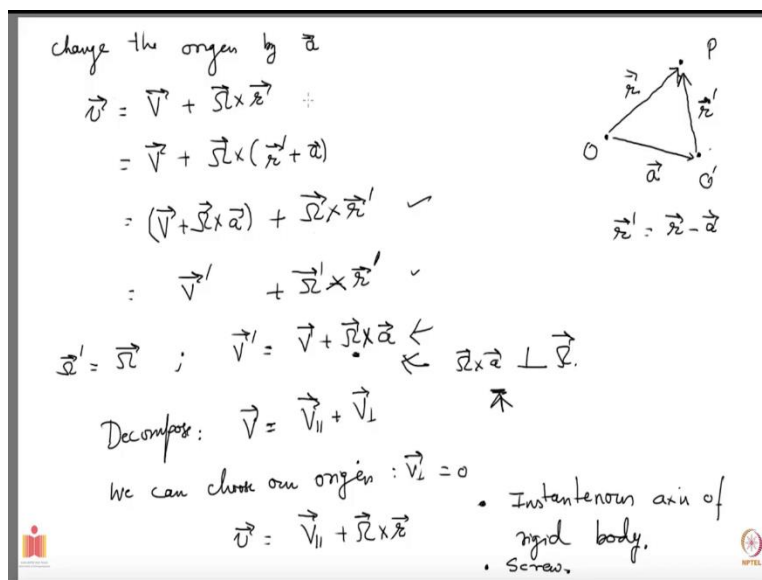 change the origen by a⃗
v⃗ = V⃗ + Ω⃗ × r⃗
= V⃗ + Ω⃗ × (r⃗' + a⃗)
= (V⃗ + Ω⃗ × a⃗) + Ω⃗ × r⃗' ✓
= V⃗' + Ω⃗' × r⃗' ✓
Ω⃗' = Ω⃗ ; V⃗' = V⃗ + Ω⃗ × a⃗ ← ← Ω⃗ × a⃗ ⊥ Ω⃗.
Decompose: V⃗ = V⃗∥ + V⃗⊥
We can choose our origen : V⃗⊥ = 0
v⃗ = V⃗∥ + Ω⃗ × r⃗
P
r⃗ r⃗'
O a⃗ O'
r⃗' = r⃗ - a⃗
• Instantenous axis of
rigid body.
• Screw.
NPTEL